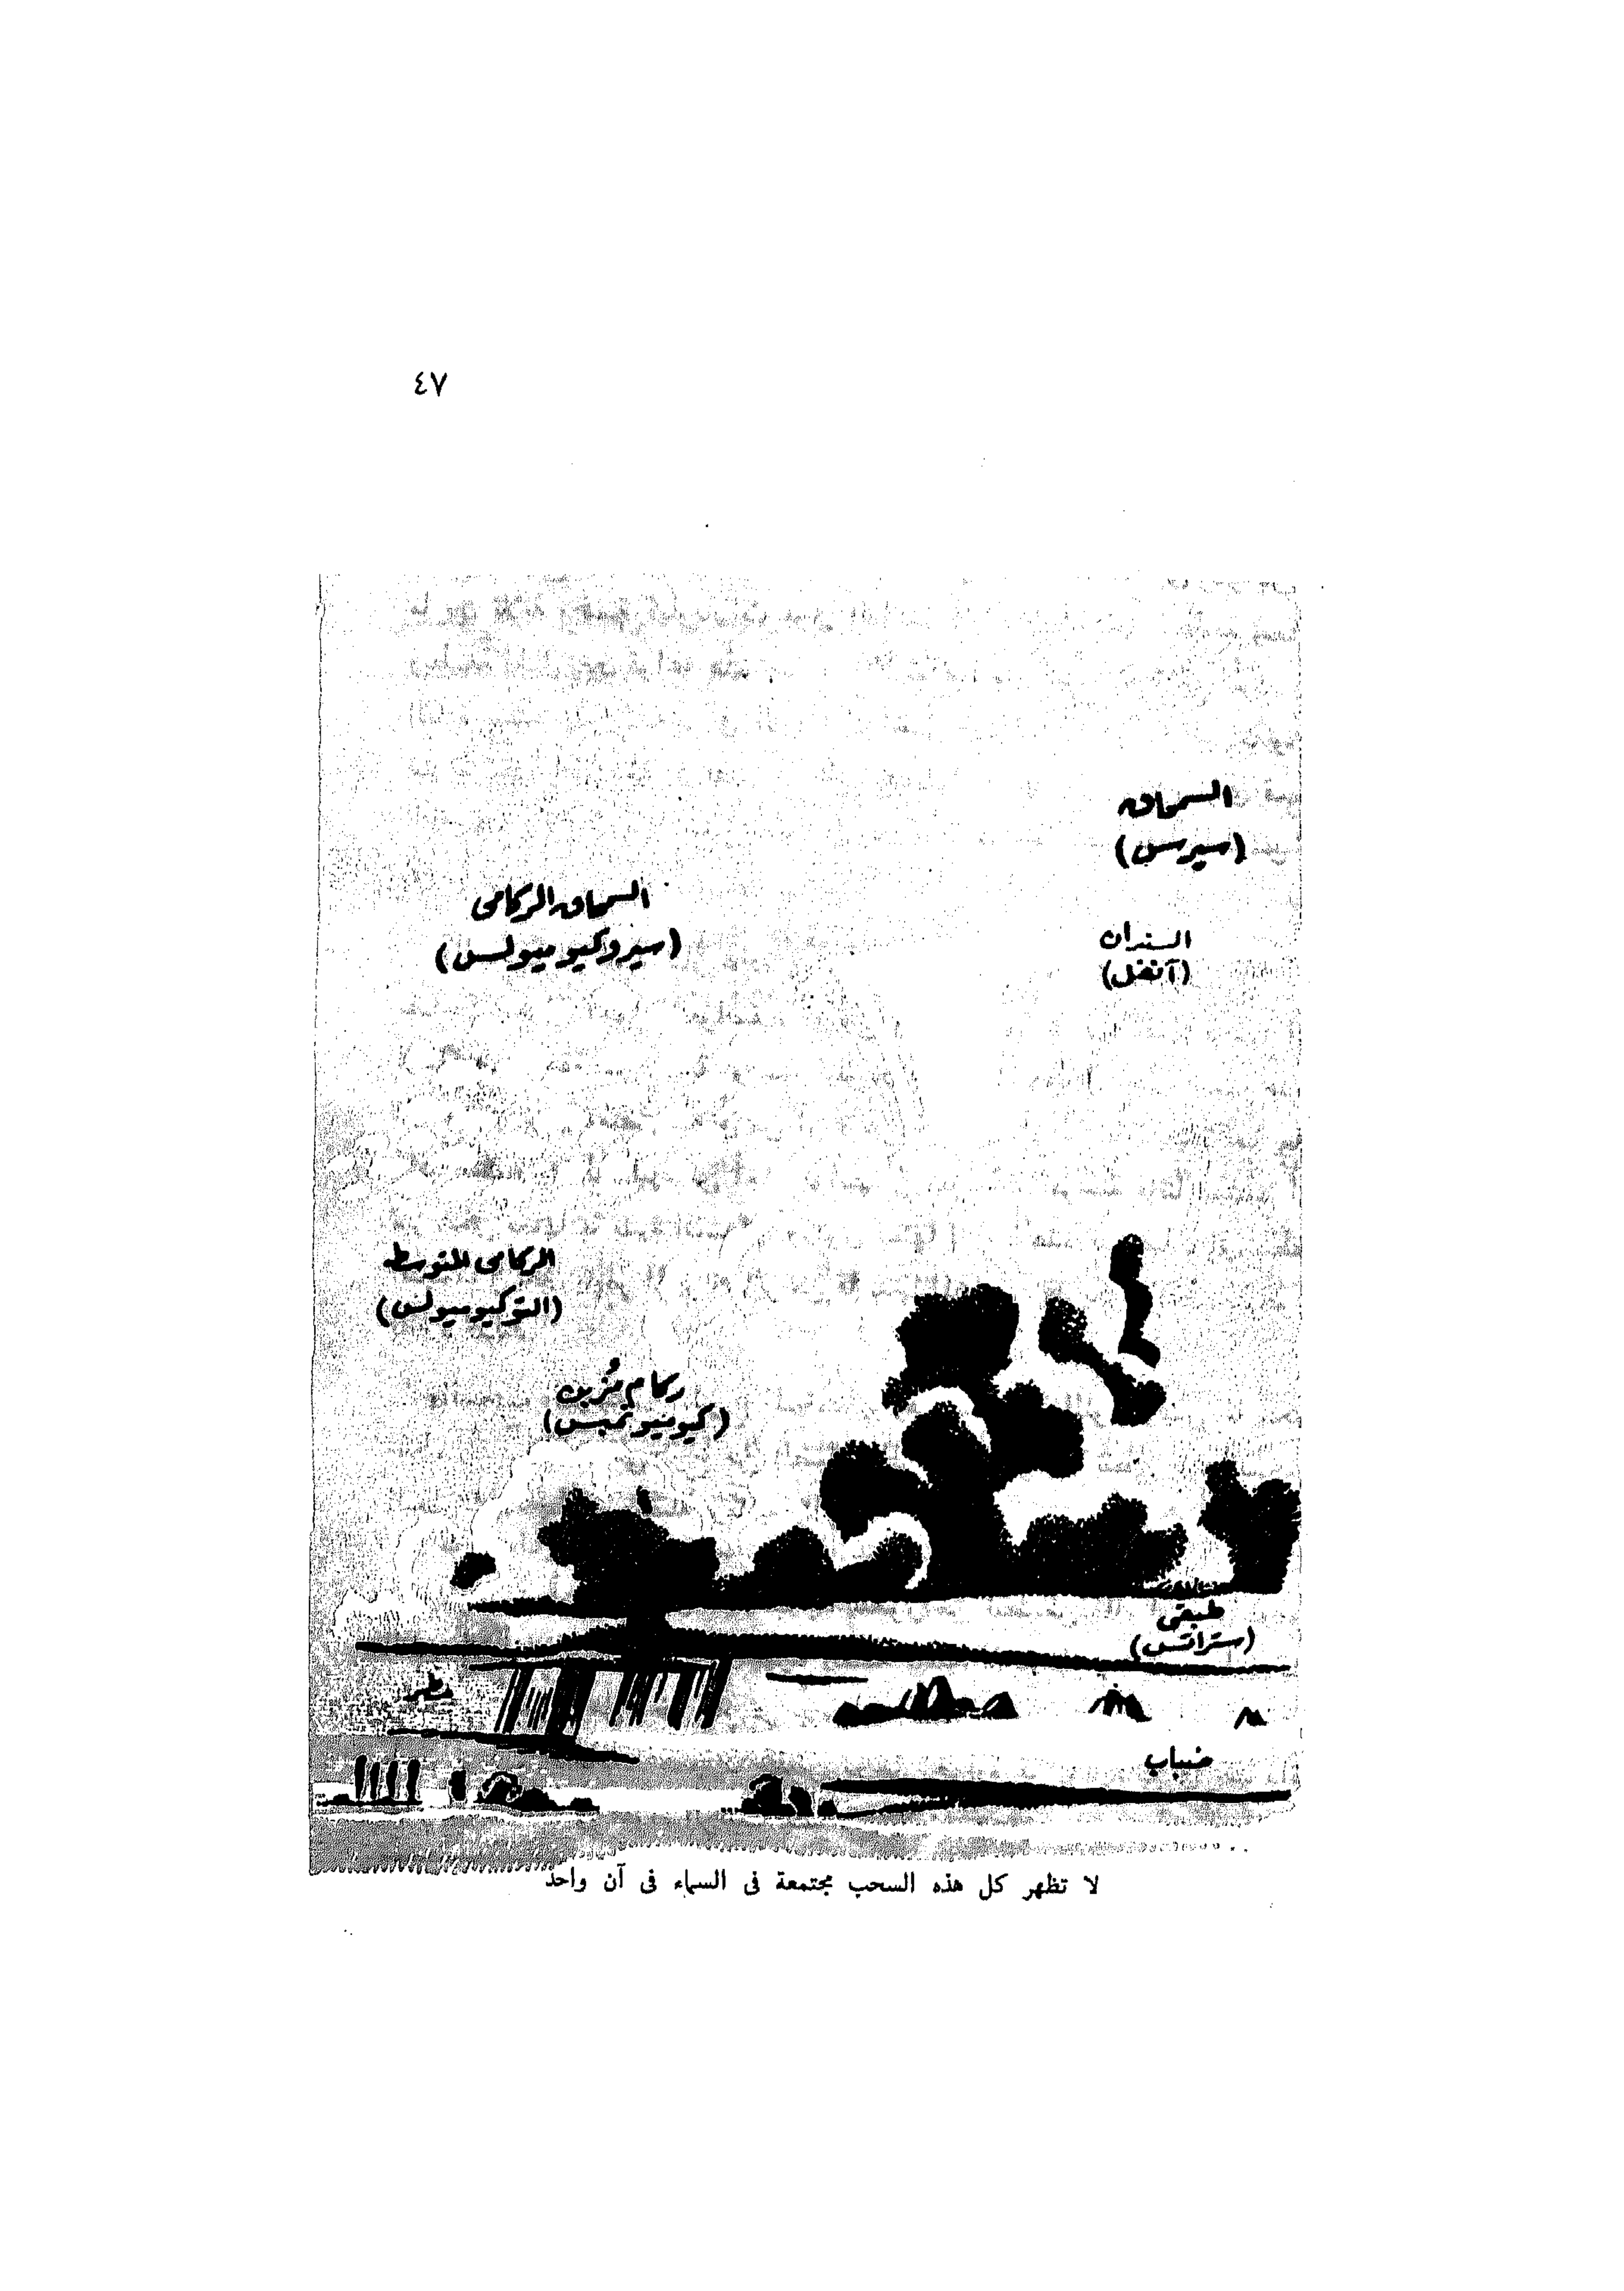 ٤٧
السمحاق
(سيرس)
السمحاق الركامى
(سيروكيوميولس)
السندان
(آنفل)
الركامى المتوسط
(التوكيوميولس)
ركام مُزن
(كيوميونمبس)
طبقى
(ستراتس)
مطر
ضباب
لا تظهر كل هذه السحب مجتمعة فى السماء فى آن واحد